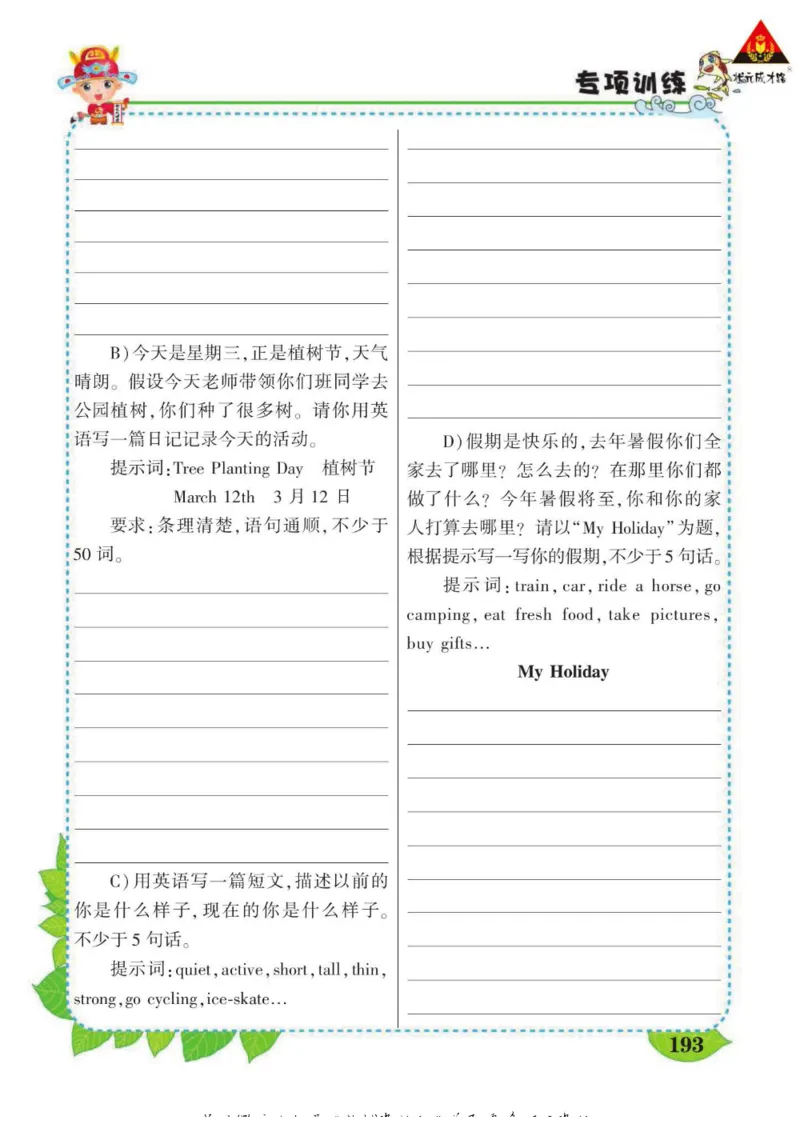 专项训练
状元成才路
B)今天是星期三,正是植树节,天气
晴朗。假设今天老师带领你们班同学去
公园植树,你们种了很多树。请你用英
语写一篇日记记录今天的活动。
提示词:Tree Planting Day 植树节
March 12th 3月12日
要求:条理清楚,语句通顺,不少于
50词。
C)用英语写一篇短文,描述以前的
你是什么样子,现在的你是什么样子。
不少于5句话。
提示词:quiet,active,short,tall,thin,
strong,go cycling,ice-skate…
D)假期是快乐的,去年暑假你们全
家去了哪里？怎么去的？在那里你们都
做了什么？今年暑假将至,你和你的家
人打算去哪里？请以“My Holiday”为题,
根据提示写一写你的假期,不少于5句话。
提示词:train, car, ride a horse, go
camping, eat fresh food, take pictures,
buy gifts…
My Holiday
193